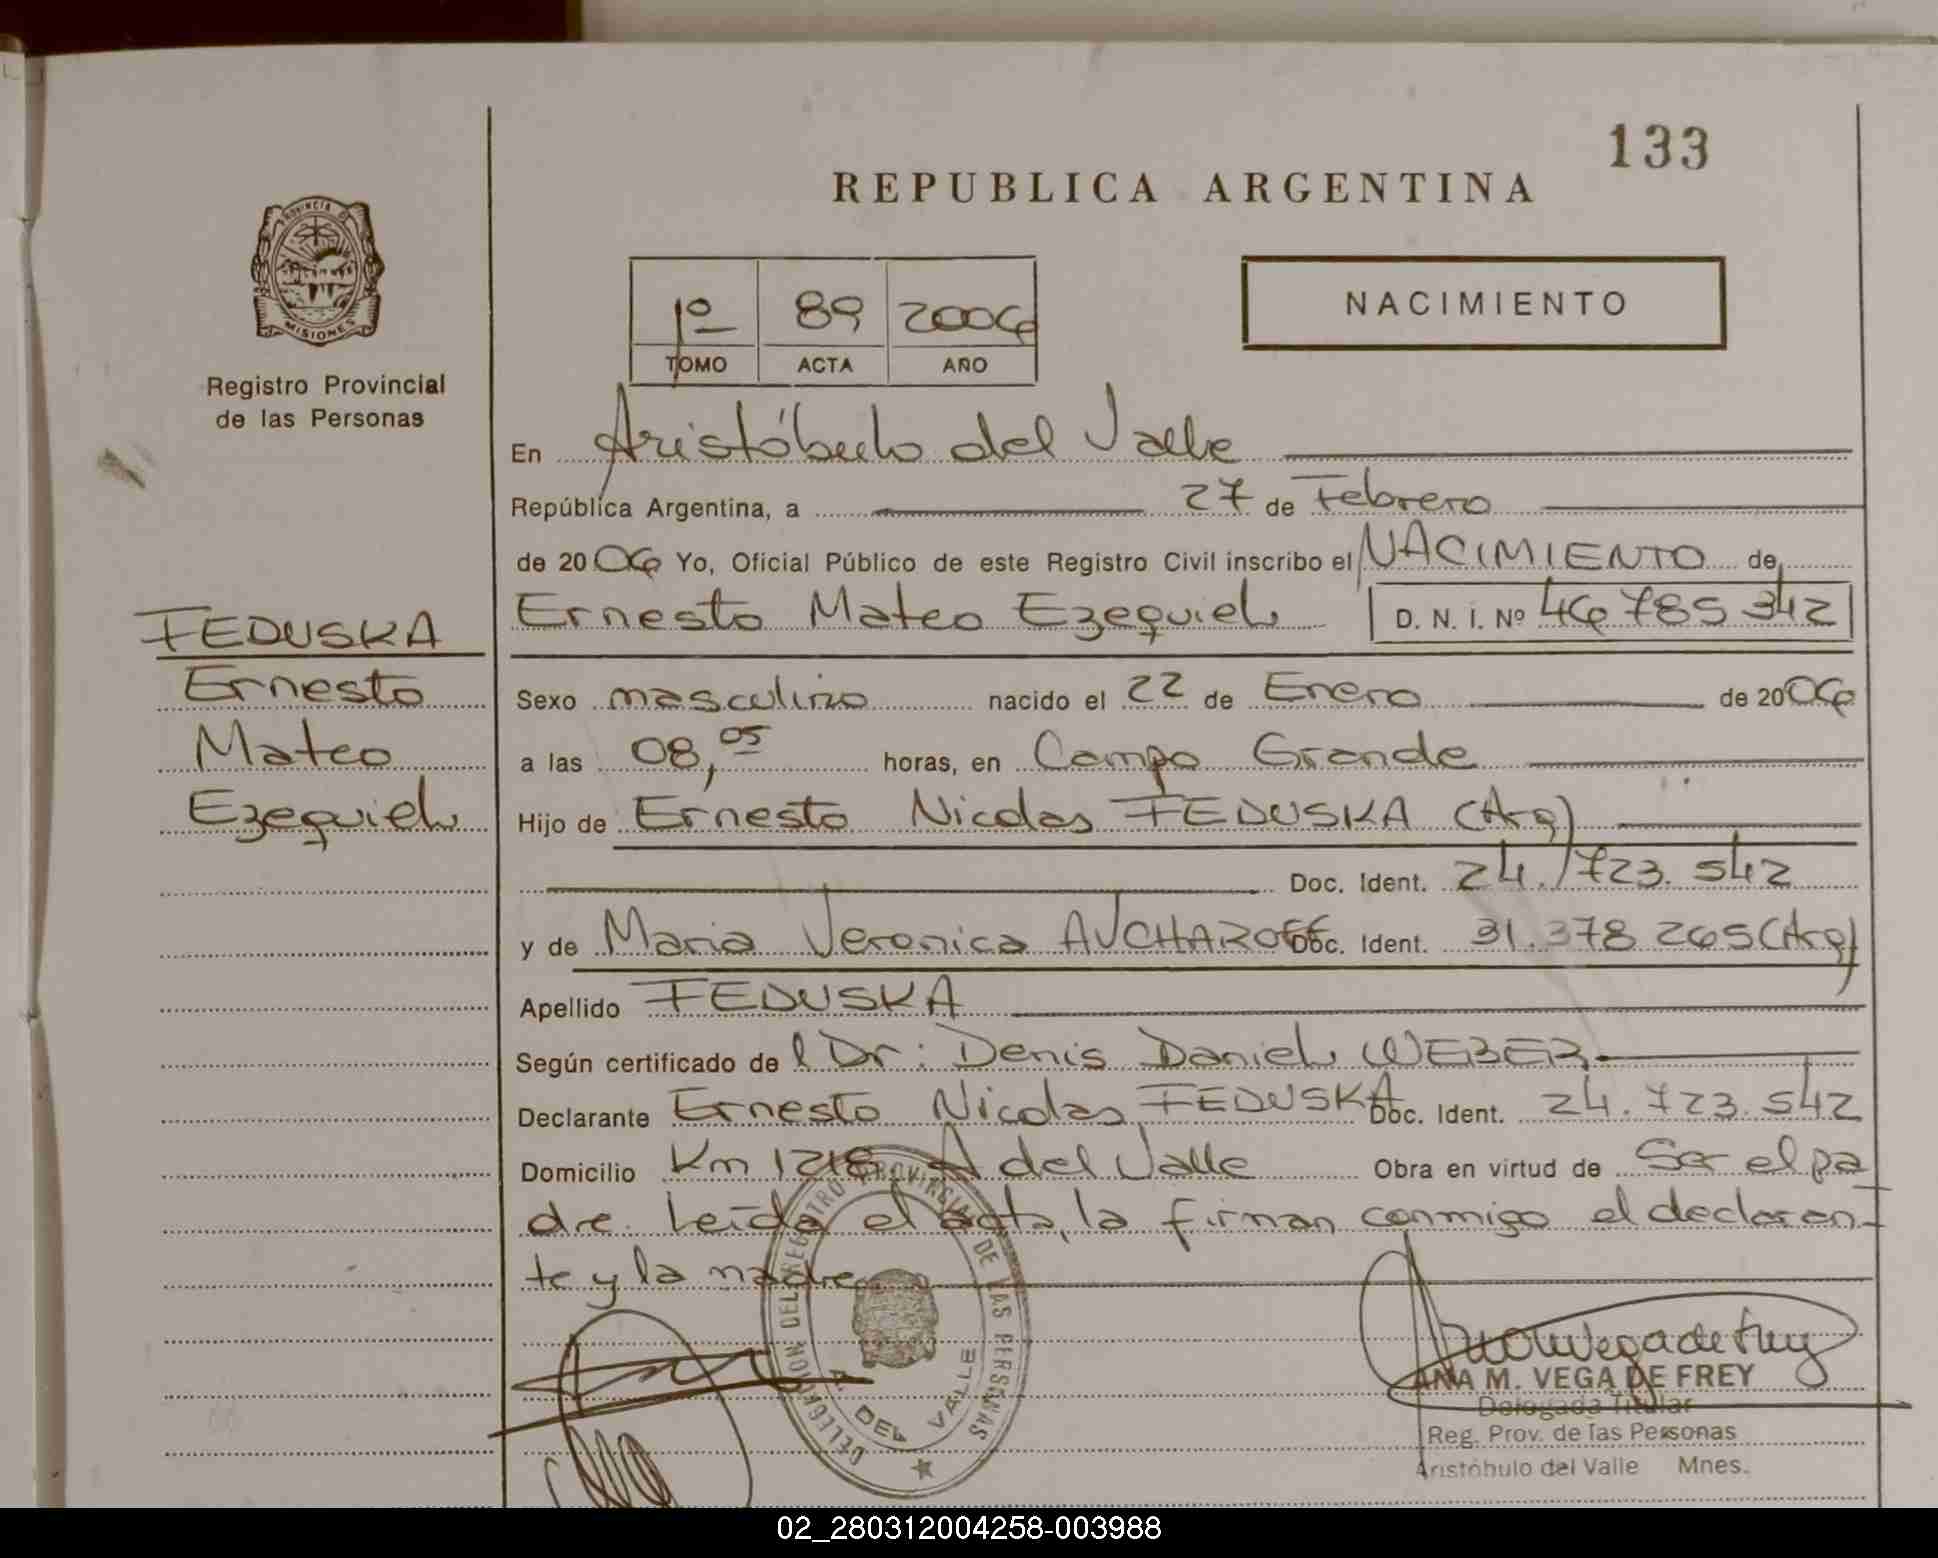 133
REPUBLICA ARGENTINA
PROVINCIA DE
MISIONES
Registro Provincial
de las Personas
1º 89 2006
TOMO ACTA AÑO
NACIMIENTO
En Aristóbulo del Valle
República Argentina, a 27 de Febrero
de 2006 Yo, Oficial Público de este Registro Civil inscribo el NACIMIENTO de
Ernesto Mateo Ezequiel D. N. I. Nº 46785342
FEDUSKA
Ernesto
Mateo
Ezequiel
Sexo masculino nacido el 22 de Enero de 2006
a las 08,05 horas, en Campo Grande
Hijo de Ernesto Nicolas FEDUSKA (Arg)
Doc. Ident. 24.723.542
y de Maria Veronica AUCHAROFF Doc. Ident. 31.378 265 (Arg)
Apellido FEDUSKA
Según certificado de l Dr: Denis Daniel WEBER.
Declarante Ernesto Nicolas FEDUSKA Doc. Ident. 24.723.542
Domicilio Km 1218 A del Valle Obra en virtud de Ser el pa
dre. Leída el acta, la firman conmigo el declaran-
te y la madre
DELEGACION DEL REGISTRO PROVINCIAL DE LAS PERSONAS
A. DEL VALLE
Ana M Vega de Frey
ANA M. VEGA DE FREY
Delegada Titular
Reg. Prov. de las Personas
Aristóbulo del Valle Mnes.
02_280312004258-003988